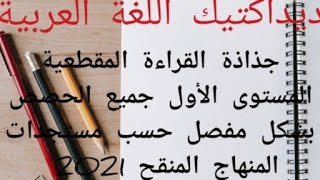 ديداكتيك اللغة العربية
جذاذة القراءة المقطعية
المستوى الأول جميع الحصص
بشكل مفصل حسب مستجدات
المنهاج المنقح 2021